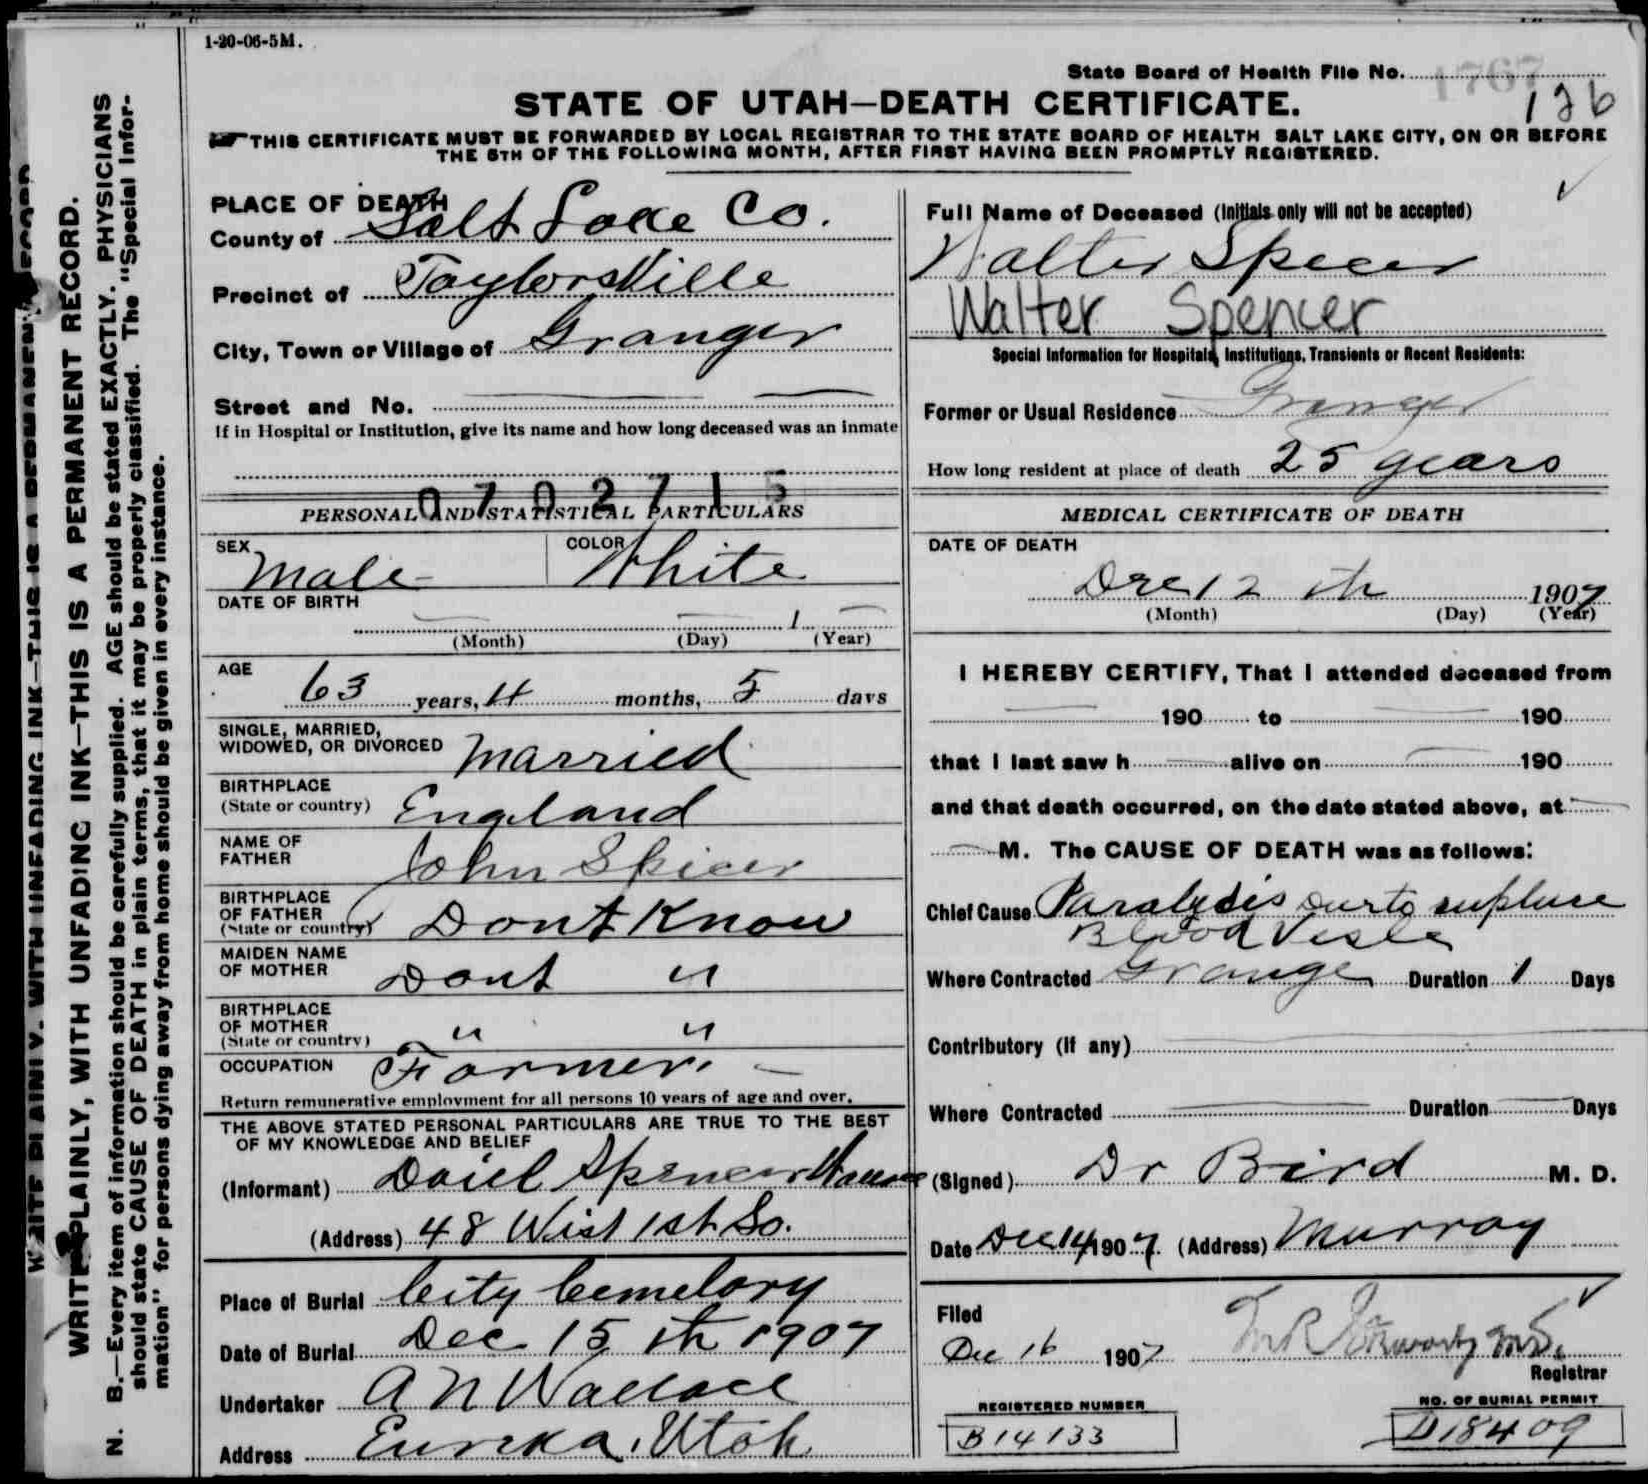 1-20-06-5M.
State Board of Health File No. 1767
126
STATE OF UTAH—DEATH CERTIFICATE.
THIS CERTIFICATE MUST BE FORWARDED BY LOCAL REGISTRAR TO THE STATE BOARD OF HEALTH SALT LAKE CITY, ON OR BEFORE
THE 5TH OF THE FOLLOWING MONTH, AFTER FIRST HAVING BEEN PROMPTLY REGISTERED.
WRITE PLAINLY, WITH UNFADING INK—THIS IS A PERMANENT RECORD
WRITE PLAINLY, WITH UNFADING INK—THIS IS A PERMANENT RECORD.
N. B.—Every item of information should be carefully supplied. AGE should be stated EXACTLY. PHYSICIANS
should state CAUSE OF DEATH in plain terms, that it may be properly classified. The "Special Infor-
mation" for persons dying away from home should be given in every instance.
PLACE OF DEATH
County of Salt Lake Co.
Precinct of Taylorsville
City, Town or Village of Granger
Street and No.
If in Hospital or Institution, give its name and how long deceased was an inmate
0702715
PERSONAL AND STATISTICAL PARTICULARS
SEX Male COLOR White
DATE OF BIRTH
1
(Month) (Day) (Year)
AGE
63 years, 4 months, 5 days
SINGLE, MARRIED,
WIDOWED, OR DIVORCED Married
BIRTHPLACE
(State or country) England
NAME OF
FATHER John Spicer
BIRTHPLACE
OF FATHER
(State or country) Dont Know
MAIDEN NAME
OF MOTHER Dont "
BIRTHPLACE
OF MOTHER
(State or country) " "
OCCUPATION Farmer.
Return remunerative employment for all persons 10 years of age and over.
THE ABOVE STATED PERSONAL PARTICULARS ARE TRUE TO THE BEST
OF MY KNOWLEDGE AND BELIEF
(Informant) Spencer Wallace
(Address) 48 West 1st So.
Place of Burial City Cemetary
Date of Burial Dec 15th 1907
Undertaker A N Wallace
Address Eureka, Utah
Full Name of Deceased (Initials only will not be accepted)
Walter Spicer
Walter Spencer
Special Information for Hospitals, Institutions, Transients or Recent Residents:
Former or Usual Residence Granger
How long resident at place of death 25 years
MEDICAL CERTIFICATE OF DEATH
DATE OF DEATH
Dec 12 th 1907
(Month) (Day) (Year)
I HEREBY CERTIFY, That I attended deceased from
190 to 190
that I last saw h alive on 190
and that death occurred, on the date stated above, at
M. The CAUSE OF DEATH was as follows:
Chief Cause Paralysis due to rupture
Blood Vesle
Where Contracted Granger Duration 1 Days
Contributory (If any)
Where Contracted Duration Days
(Signed) Dr Bird M. D.
Date Dec 14 1907 (Address) Murray
Filed
Dec 16 1907
Registrar
REGISTERED NUMBER
B14133
NO. OF BURIAL PERMIT
D18409